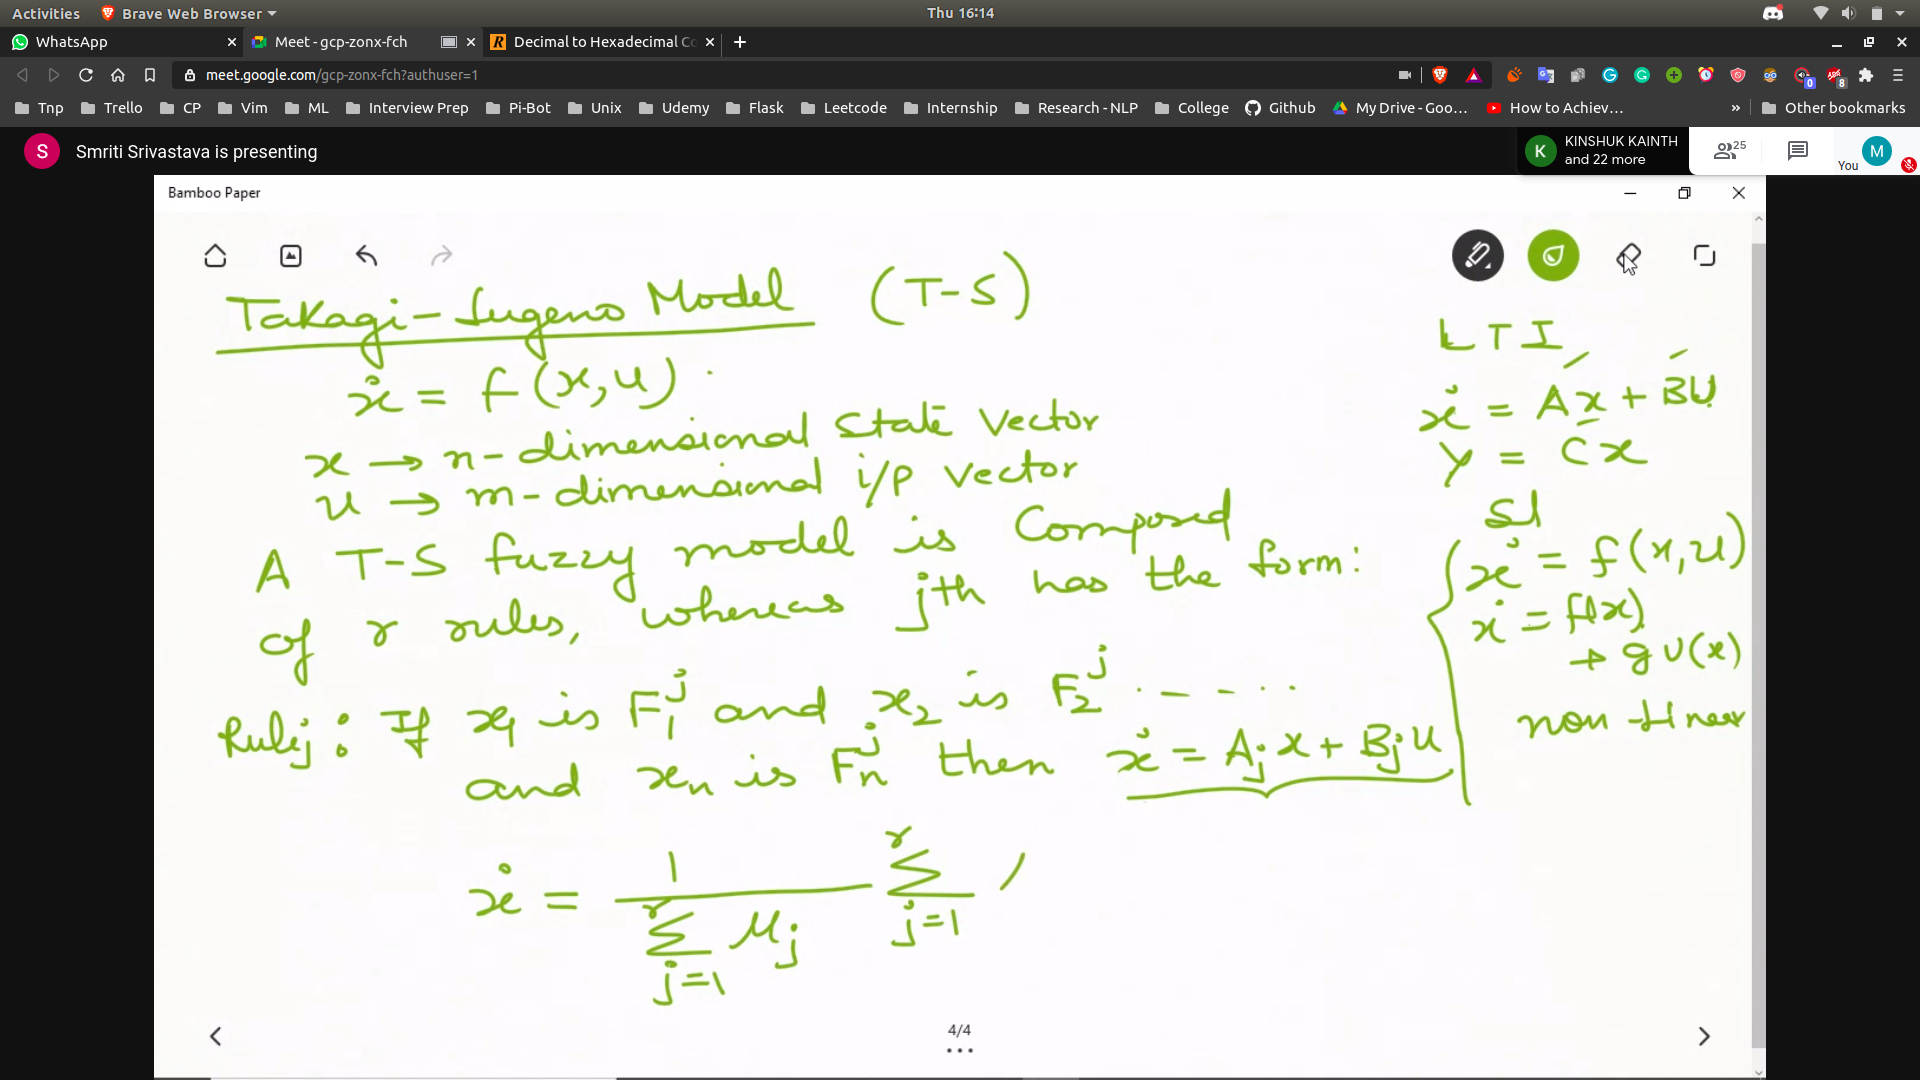 Activities
Brave Web Browser
Thu 16:14
WhatsApp
Meet - gcp-zonx-fch
Decimal to Hexadecimal Co
meet.google.com/gcp-zonx-fch?authuser=1
0
8
Tnp
Trello
CP
Vim
ML
Interview Prep
Pi-Bot
Unix
Udemy
Flask
Leetcode
Internship
Research - NLP
College
Github
My Drive - Goo...
How to Achiev...
»
Other bookmarks
S
Smriti Srivastava is presenting
K
KINSHUK KAINTH
and 22 more
25
You
M
Bamboo Paper
Takagi-Sugeno Model (T-S)
ẋ = f(x,u)
x → n-dimensional State Vector
u → m-dimensional i/p Vector
A T-S fuzzy model is Composed
of r rules, whereas jth has the form:
Rulej: If x1 is F1^j and x2 is F2^j ------
and xn is Fn^j then ẋ = Ajx + Bju
ẋ = 1/(Σ_{j=1}^{r} μj) Σ_{j=1}^{r}
LTI
ẋ = Ax + BU
Y = Cx
ẋ = f(x,u)
ẋ = f(x)
+ g u(x)
non-linear
4/4